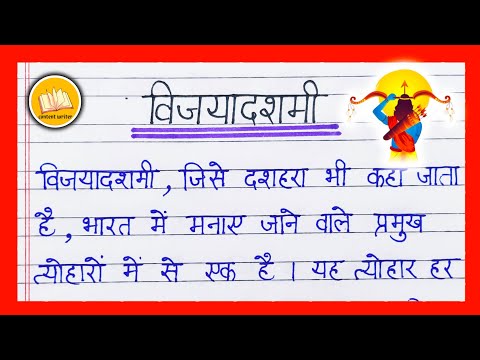 content writer
विजयादशमी
विजयादशमी, जिसे दशहरा भी कहा जाता
है, भारत में मनाए जाने वाले प्रमुख
त्योहारों में से एक है। यह त्योहार हर